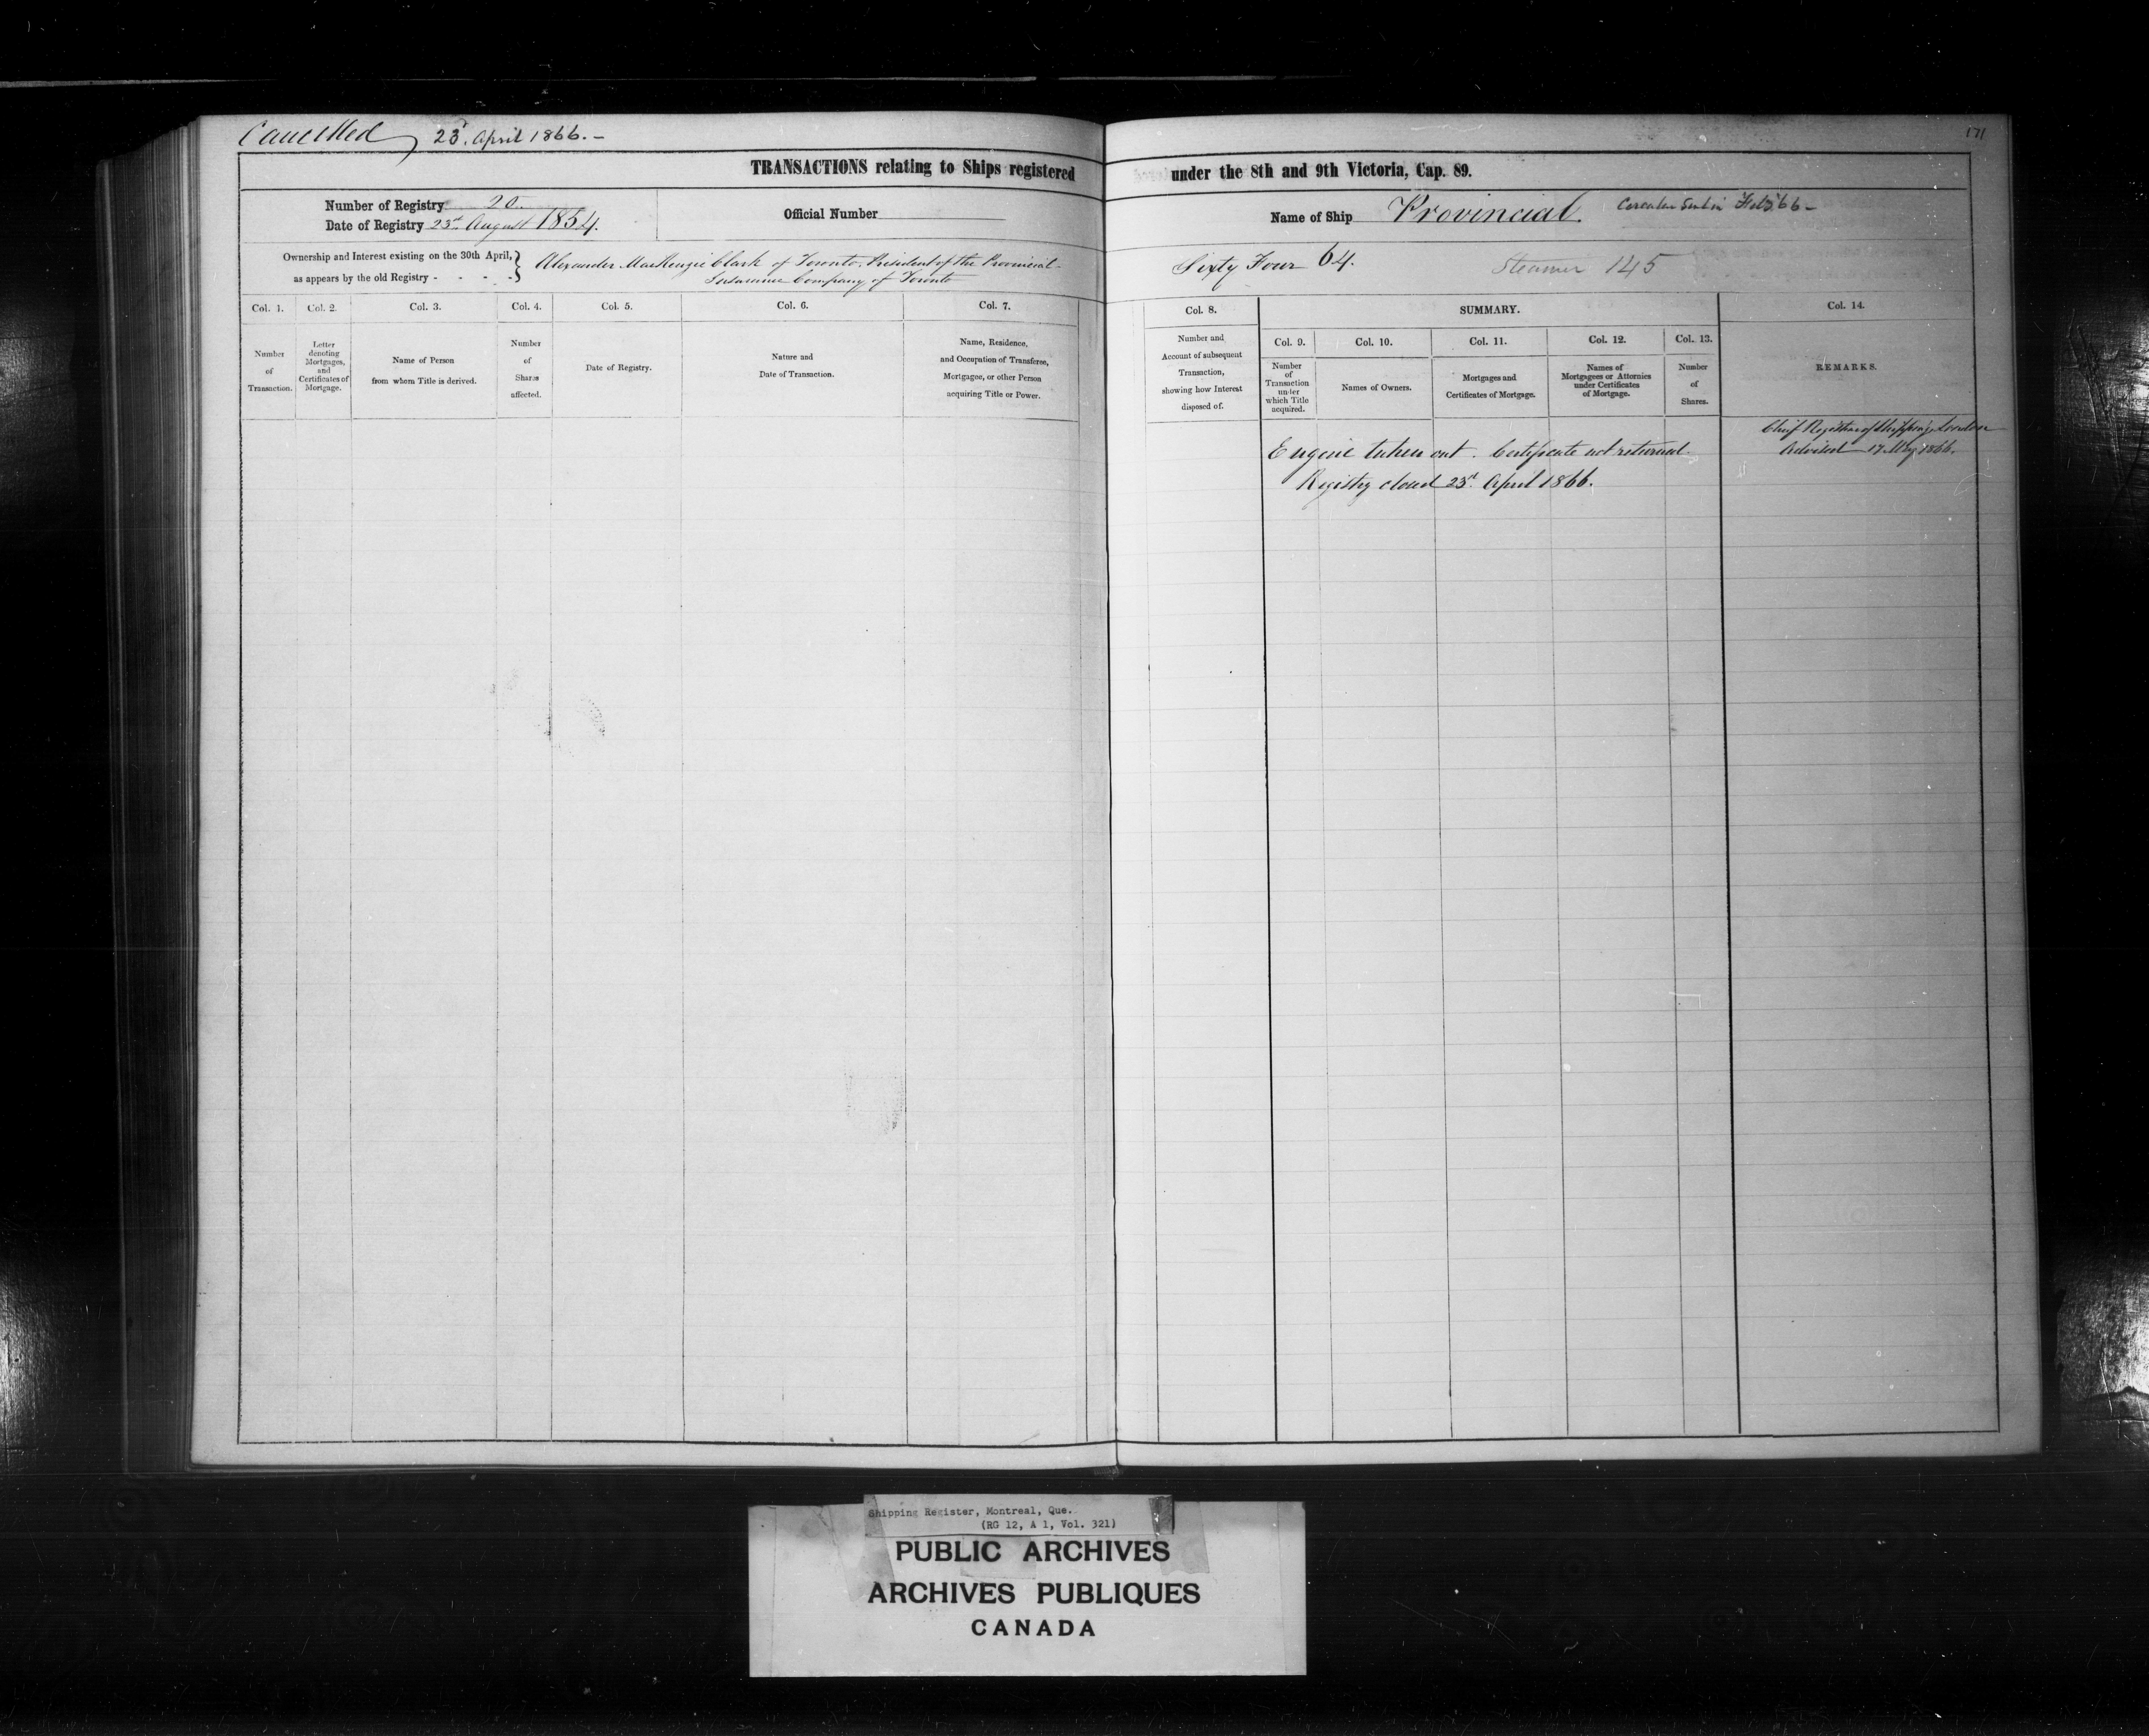 Cancelled 23d. April 1866. –
171
TRANSACTIONS relating to Ships registered under the 8th and 9th Victoria, Cap. 89.
Number of Registry 20.
Date of Registry 23rd August 1854.
Official Number
Name of Ship Provincial.
Circular Sent in Feb '66 –
Ownership and Interest existing on the 30th April,
as appears by the old Registry - - - -
Alexander MacKenzie Clark of Toronto. President of the Provincial
Insurance Company of Toronto
Sixty Four 64.
Steamer 145
Col. 1.
Number
of
Transaction.
Col. 2.
Letter
denoting
Mortgages,
and
Certificates of
Mortgage.
Col. 3.
Name of Person
from whom Title is derived.
Col. 4.
Number
of
Shares
affected.
Col. 5.
Date of Registry.
Col. 6.
Nature and
Date of Transaction.
Col. 7.
Name, Residence,
and Occupation of Transferee,
Mortgagee, or other Person
acquiring Title or Power.
Col. 8.
Number and
Account of subsequent
Transaction,
showing how Interest
disposed of.
SUMMARY.
Col. 9.
Number
of
Transaction
under
which Title
acquired.
Col. 10.
Names of Owners.
Col. 11.
Mortgages and
Certificates of Mortgage.
Col. 12.
Names of
Mortgagees or Attornies
under Certificates
of Mortgage.
Col. 13.
Number
of
Shares.
Col. 14.
REMARKS.
Engine taken out. Certificate not returned.
Registry closed 23rd. April 1866.
Chief Registrar of Shipping, London
Advised 17 May 1866.
Shipping Register, Montreal, Que.
(RG 12, A 1, Vol. 321)
PUBLIC ARCHIVES
ARCHIVES PUBLIQUES
CANADA